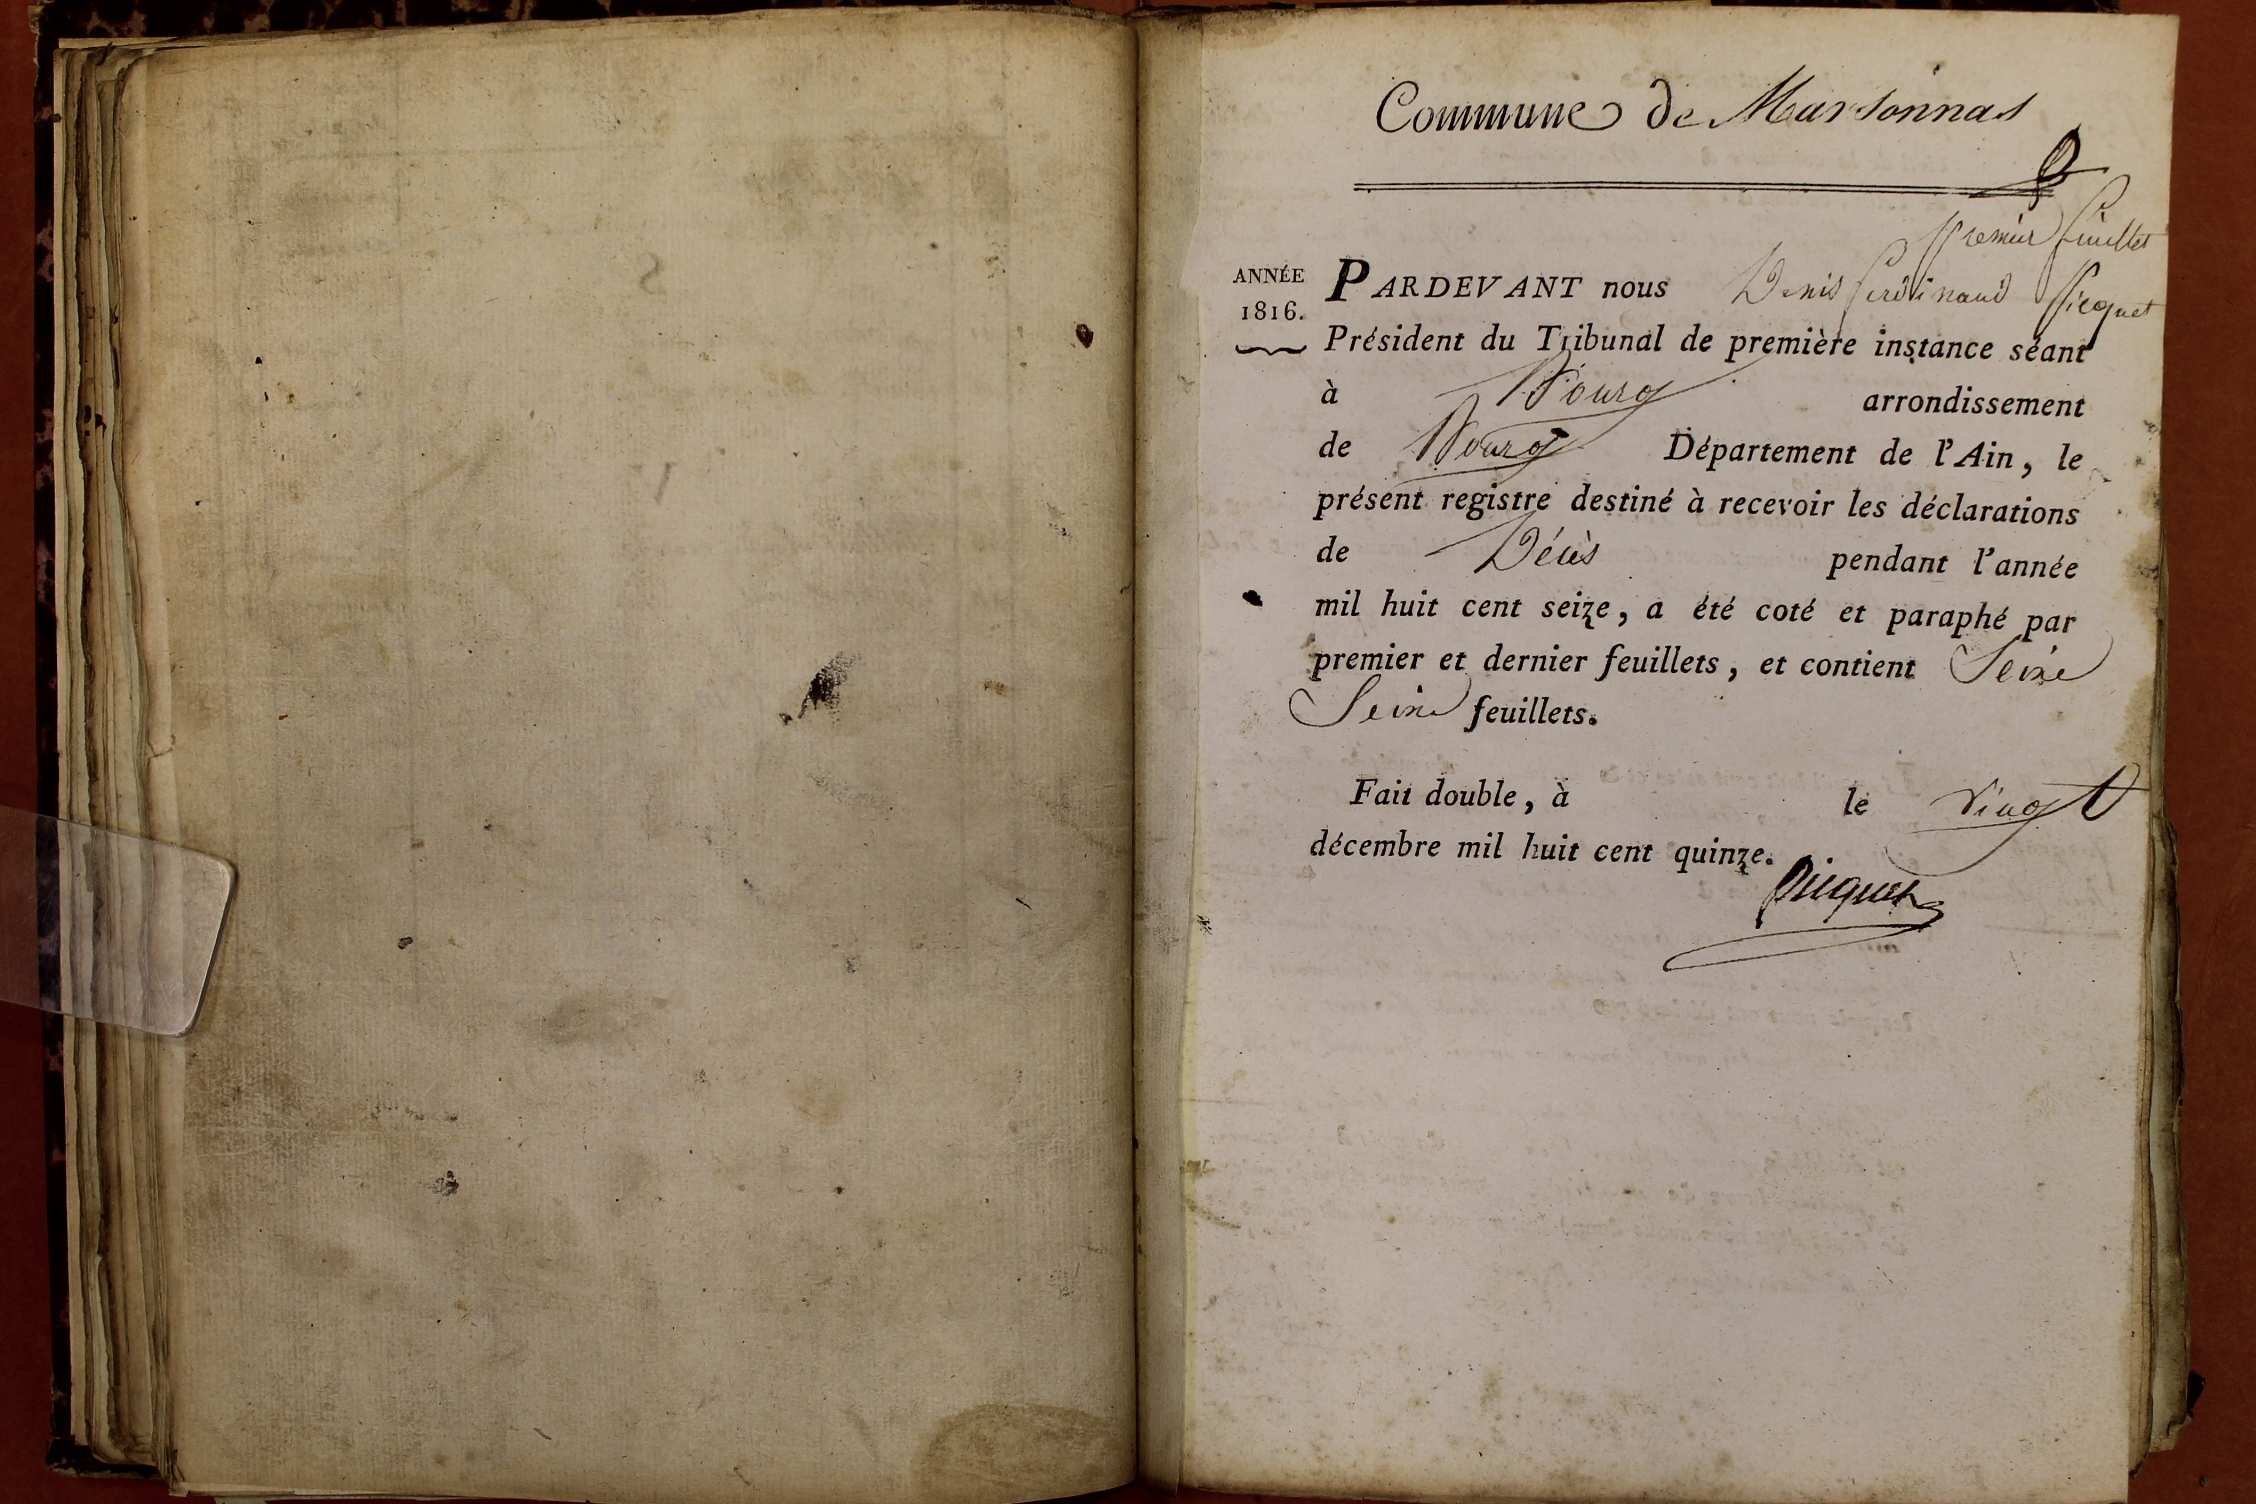 Commune de Marsonnas
premier feuillet
ANNÉE
1816.
PARDEVANT nous Denis ferdinand Picquet
Président du Tribunal de première instance séant
à Bourg arrondissement
de Bourg Département de l'Ain, le
présent registre destiné à recevoir les déclarations
de Décès pendant l'année
mil huit cent seize, a été coté et paraphé par
premier et dernier feuillets, et contient Seize
Seize feuillets.
Fait double, à le vingt
décembre mil huit cent quinze.
Picquet